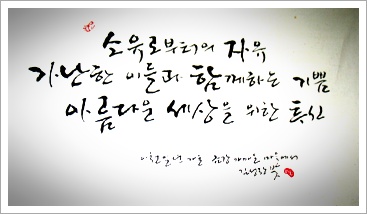 소유로부터의 자유
가난한 이들과 함께하는 기쁨
아름다운 세상을 위한 헌신
이천일년 가을